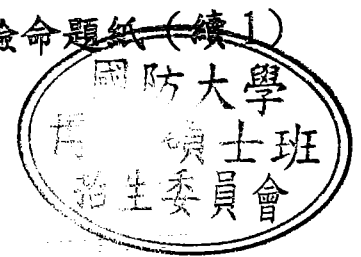 命題紙（續1）
國防大學
碩士班
招生委員會